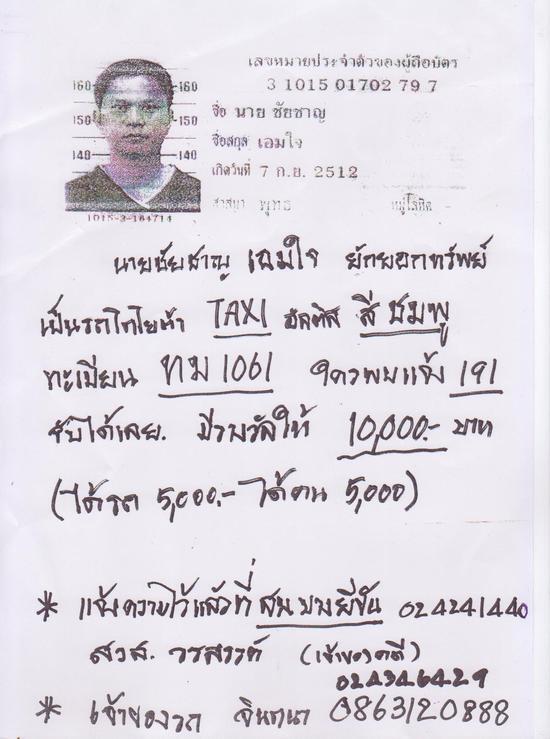 เลขหมายประจำตัวของผู้ถือบัตร
3 1015 01702 79 7
ชื่อ นาย ชัยชาญ
ชื่อสกุล เอมใจ
เกิดวันที่ 7 ก.ย. 2512
ศาสนา พุทธ หมู่โลหิต
160 160
150 150
140 140
1015-2-164714
นายชัยชาญ เอมใจ ยักยอกทรัพย์
เป็นรถโตโยต้า TAXI อัลติส สีชมพู
ทะเบียน ทม 1061 ใครพบแจ้ง 191
จับได้เลย. มีรางวัลให้ 10,000.- บาท
(ได้รถ 5,000.- ได้คน 5,000)
* แจ้งความไว้แล้วที่ สน บางยี่ขัน 024241440
สวส. วรสรรค์ (เจ้าของคดี)
024346429
* เจ้าของรถ จินตนา 0863120888